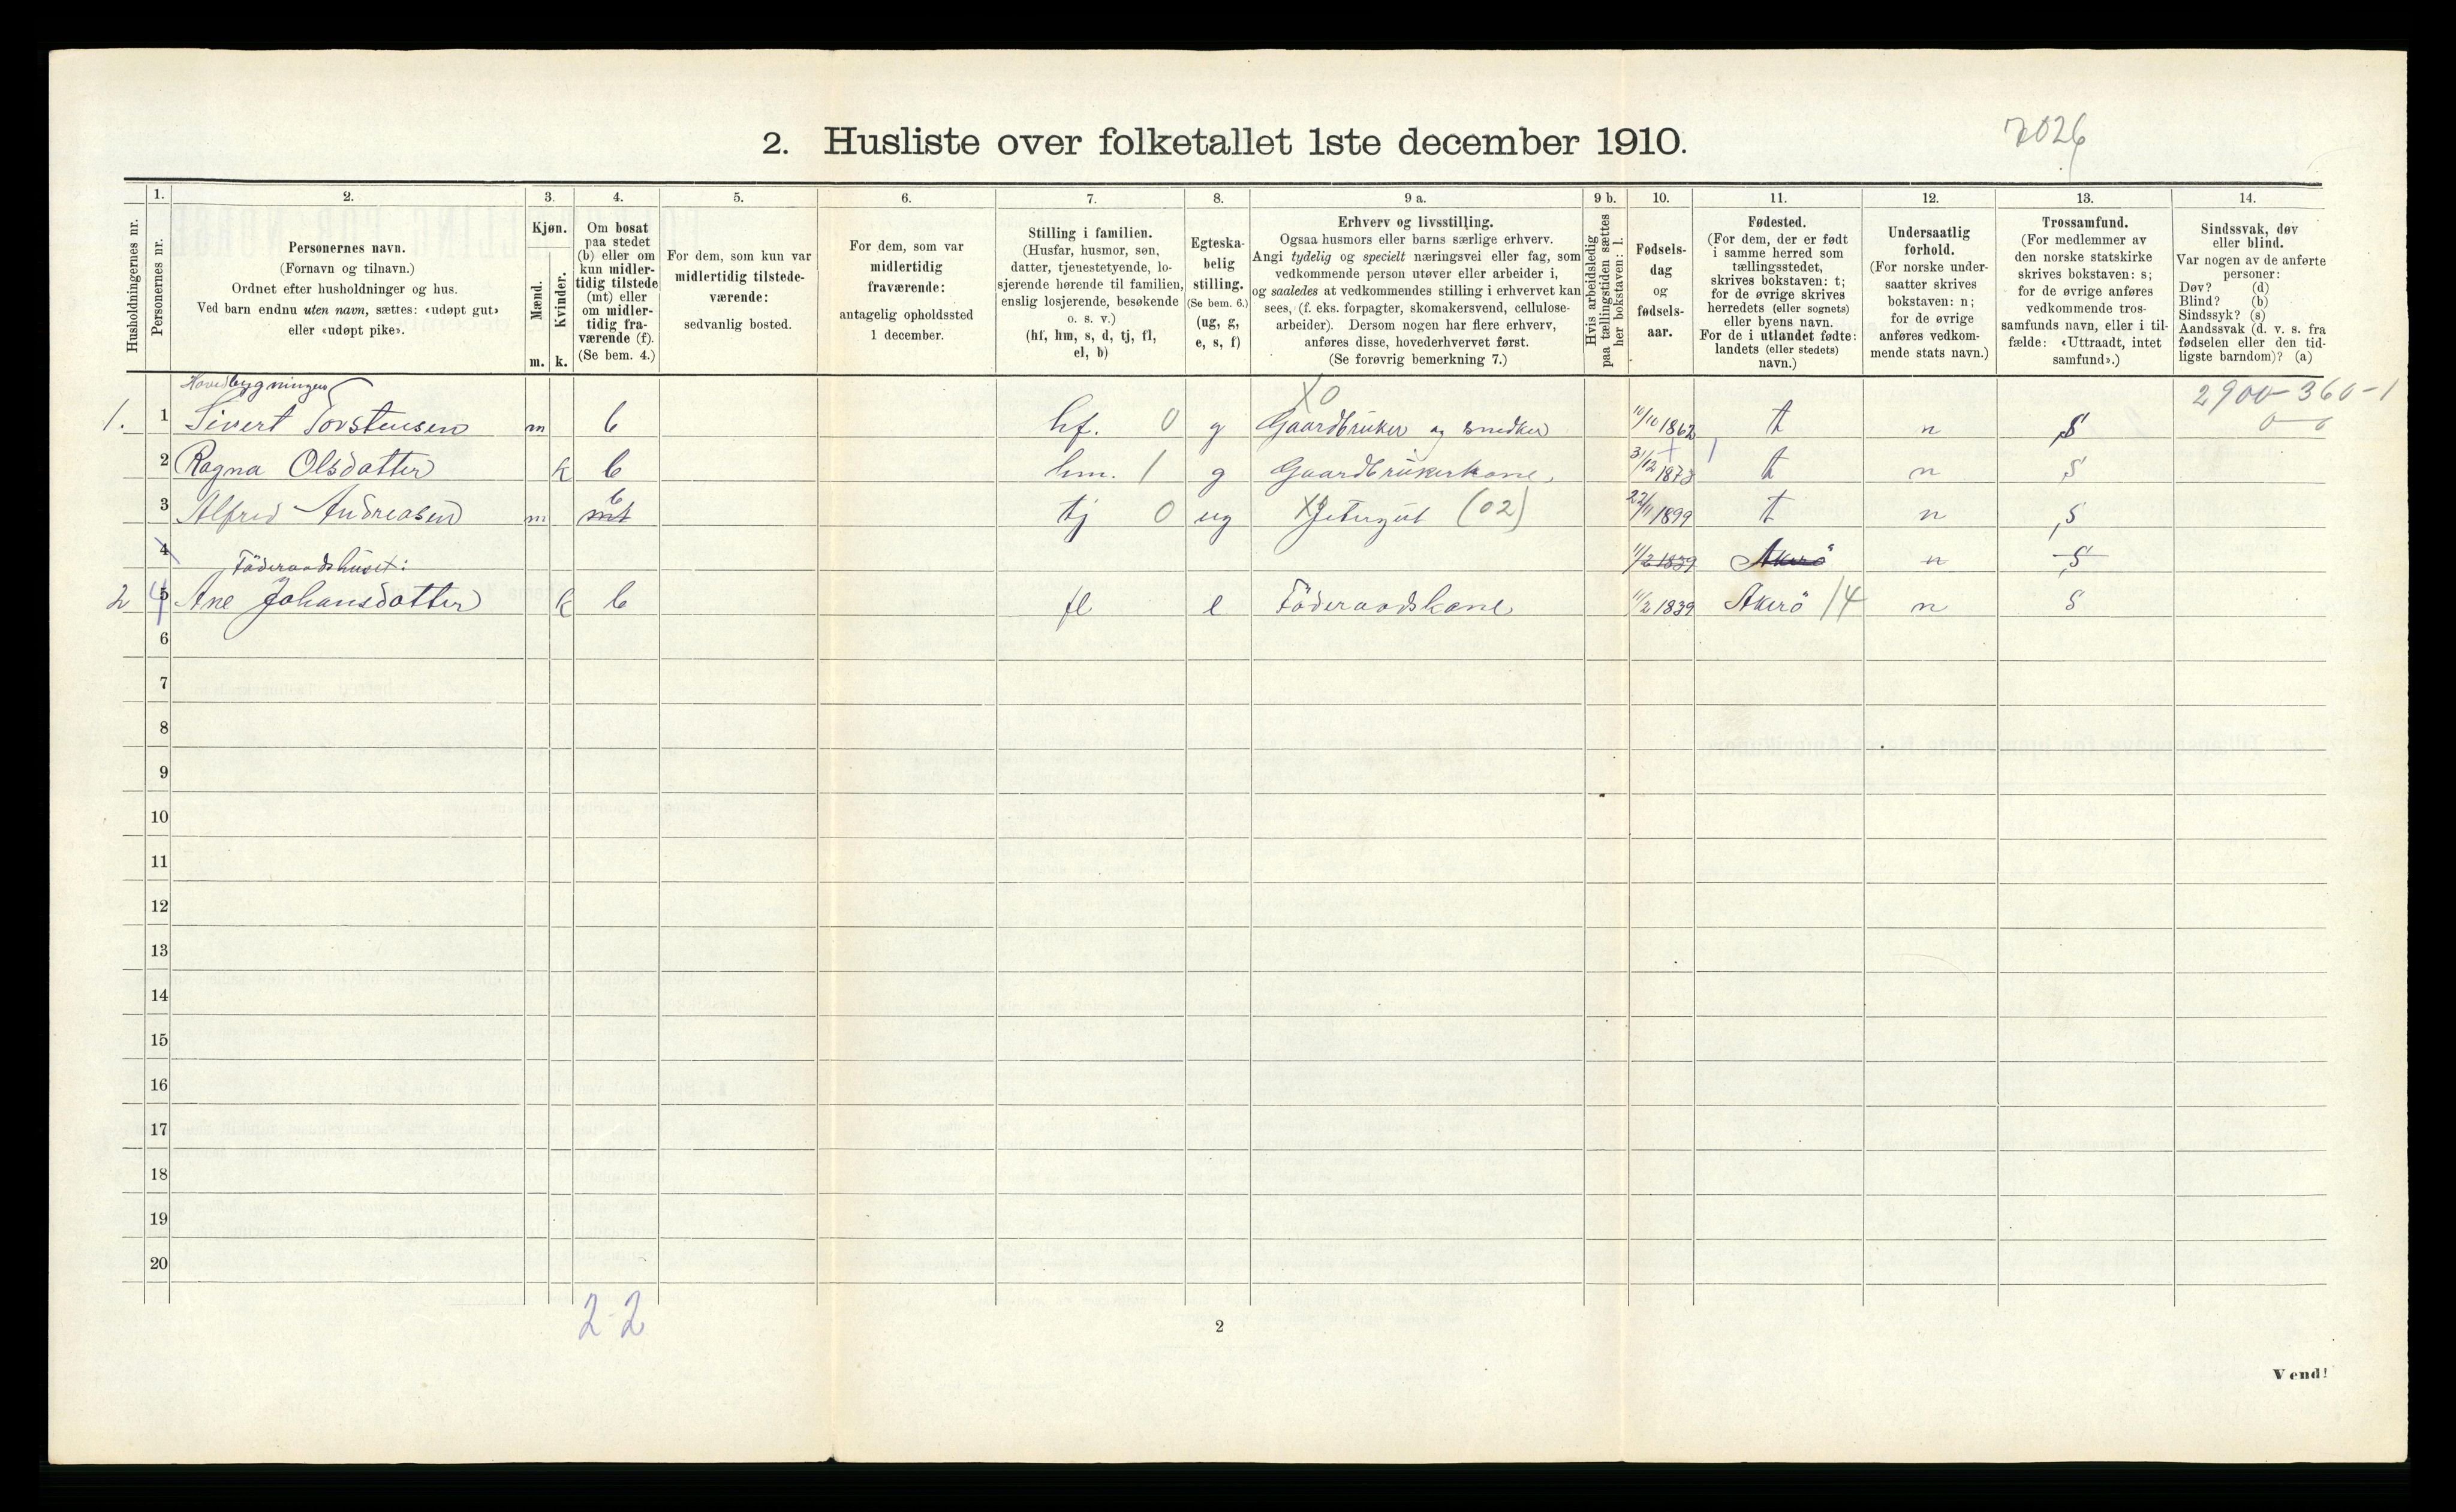 2. Husliste over folketallet 1ste december 1910.
7026
Husholdningernes nr.
1.
Personernes nr.
2.
Personernes navn.
(Fornavn og tilnavn.)
Ordnet efter husholdninger og hus.
Ved barn endnu uten navn, sættes: «udøpt gut»
eller «udøpt pike».
3.
Kjøn.
Mænd.
Kvinder.
m. k.
4.
Om bosat
paa stedet
(b) eller om
kun midler-
tidig tilstede
(mt) eller
om midler-
tidig fra-
værende (f).
(Se bem. 4.)
5.
For dem, som kun var
midlertidig tilstede-
værende:
sedvanlig bosted.
6.
For dem, som var
midlertidig
fraværende:
antagelig opholdssted
1 december.
7.
Stilling i familien.
(Husfar, husmor, søn,
datter, tjenestetyende, lo-
sjerende hørende til familien,
enslig losjerende, besøkende
o. s. v.)
(hf, hm, s, d, tj, fl,
el, b)
8.
Egteska-
belig
stilling.
(Se bem. 6.)
(ug, g,
e, s, f)
9 a.
Erhverv og livsstilling.
Ogsaa husmors eller barns særlige erhverv.
Angi tydelig og specielt næringsvei eller fag, som
vedkommende person utøver eller arbeider i,
og saaledes at vedkommendes stilling i erhvervet kan
sees, (f. eks. forpagter, skomakersvend, cellulose-
arbeider). Dersom nogen har flere erhverv,
anføres disse, hovederhvervet først.
(Se forøvrig bemerkning 7.)
9 b.
Hvis arbeidsledig
paa tællingstiden sættes
her bokstaven: l.
10.
Fødsels-
dag
og
fødsels-
aar.
11.
Fødested.
(For dem, der er født
i samme herred som
tællingsstedet,
skrives bokstaven: t;
for de øvrige skrives
herredets (eller sognets)
eller byens navn.
For de i utlandet fødte:
landets (eller stedets)
navn.)
12.
Undersaatlig
forhold.
(For norske under-
saatter skrives
bokstaven: n;
for de øvrige
anføres vedkom-
mende stats navn.)
13.
Trossamfund.
(For medlemmer av
den norske statskirke
skrives bokstaven: s;
for de øvrige anføres
vedkommende tros-
samfunds navn, eller i til-
fælde: «Uttraadt, intet
samfund».)
14.
Sindssvak, døv
eller blind.
Var nogen av de anførte
personer:
Døv? (d)
Blind? (b)
Sindssyk? (s)
Aandssvak (d. v. s. fra
fødselen eller den tid-
ligste barndom)? (a)
Hovedbygningen
X0 2900-360-1
0 - 0
1. 1 Sivert Torstensen m b hf. 0 g Gaardbruker og snedker 10/10 1862 t n S
2 Ragna Olsdatter k b hm. 1 g Gaardbrukerkone 31/12 1873 t n S
3 Alfred Andreasen m b mt tj 0 ug X Jetergut (02) 22/11 1899 t n S
4 Föderaadshuset: 11/2 1839 Akerö n S
2 5 4 Ane Johansdotter k b fl e Föderaadskone 11/2 1839 Akerö 14 n S
6
7
8
9
10
11
12
13
14
15
16
17
18
19
20
2-2
2
Vend!